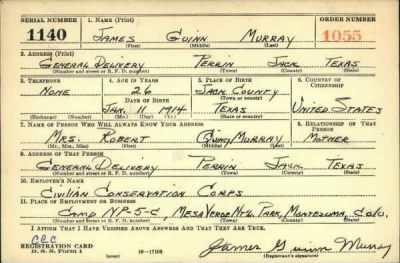 SERIAL NUMBER 1. NAME (Print) ORDER NUMBER
1140 JAMES GUINN MURRAY 1055
(First) (Middle) (Last)
2. ADDRESS (Print)
GENERAL DELIVERY PERRIN JACK TEXAS
(Number and street or R. F. D. number) (Town) (County) (State)
3. TELEPHONE 4. AGE IN YEARS 5. PLACE OF BIRTH 6. COUNTRY OF CITIZENSHIP
NONE 26 JACK COUNTY
(Town or county)
DATE OF BIRTH
JAN. 11 1914 TEXAS UNITED STATES
(Exchange) (Number) (Mo.) (Day) (Yr.) (State or country)
7. NAME OF PERSON WHO WILL ALWAYS KNOW YOUR ADDRESS 8. RELATIONSHIP OF THAT PERSON
MRS. ROBERT MURRAY MOTHER
(Mr., Mrs., Miss) (First) (Middle) (Last)
9. ADDRESS OF THAT PERSON
GENERAL DELIVERY PERRIN JACK TEXAS
(Number and street or R. F. D. number) (Town) (County) (State)
10. EMPLOYER'S NAME
CIVILIAN CONSERVATION CORPS
11. PLACE OF EMPLOYMENT OR BUSINESS
CAMP N.P-5-C, MESA VERDE NT'L PARK, MONTEZUMA, COLO.
(Number and street or R. F. D. number) (Town) (County) (State)
I AFFIRM THAT I HAVE VERIFIED ABOVE ANSWERS AND THAT THEY ARE TRUE.
CCC
REGISTRATION CARD
D. S. S. Form 1 (over) 16—17105 James Guinn Murray
(Registrant's signature)